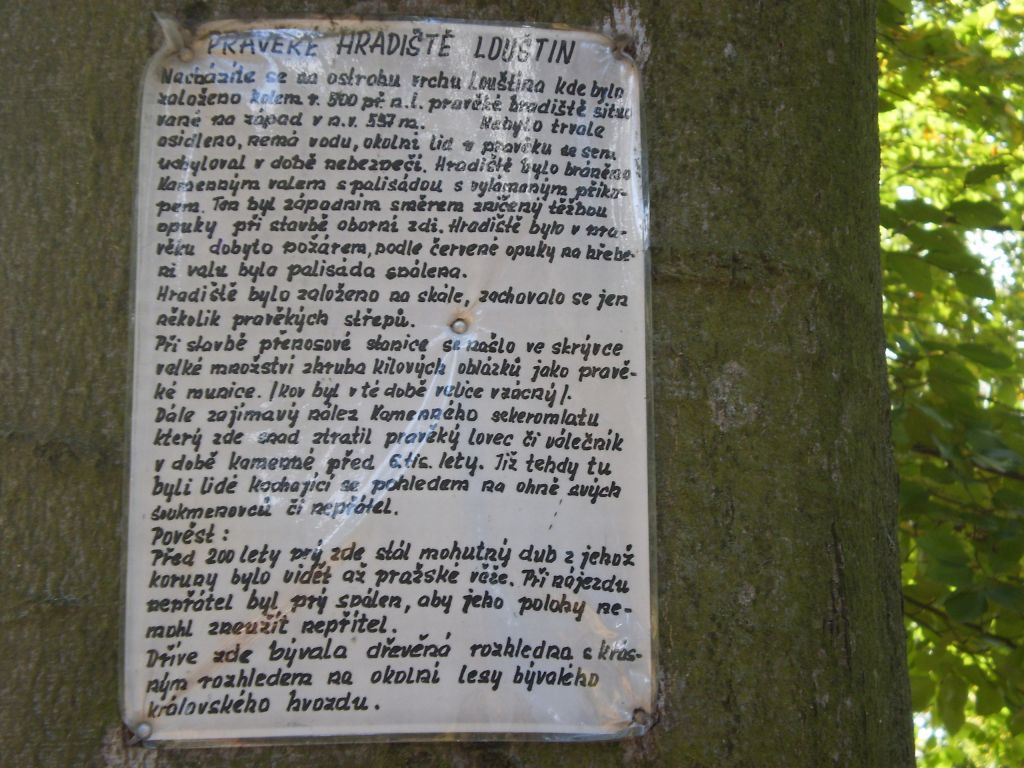 PRAVĚKÉ HRADIŠTĚ LOUŠTIN
Nacházíte se na ostrohu vrchu Louština kde bylo
založeno kolem r. 500 př n.l. pravěké hradiště situo
vané na západ v n.v. 537 m. Nebylo trvale
osídleno, nemá vodu, okolní lid v pravěku se sem
uchyloval v době nebezpečí. Hradiště bylo bráněno
Kamenným valem s palisádou s vylámaným příko-
pem. Ten byl západním směrem zničený těžbou
opuky při stavbě oborní zdi. Hradiště bylo v pra-
věku dobyto požárem, podle červené opuky na hřebe-
ni valu byla palisáda spálena.
Hradiště bylo založeno na skále, zachovalo se jen
několik pravěkých střepů.
Při stavbě přenosové stanice se našlo ve skrývce
velké množství zhruba kilových oblázků jako pravě-
ké munice. /kov byl v té době velice vzácný/.
Dále zajímavý nález Kamenného sekeromlatu
který zde snad ztratil pravěký lovec či válečník
v době kamenné před 6.tis. lety. Již tehdy tu
byli lidé kochající se pohledem na ohně svých
soukmenovců či nepřátel.
Pověst:
Před 200 lety prý zde stál mohutný dub z jehož
koruny bylo vidět až pražské věže. Při nájezdu
nepřátel byl prý spálen, aby jeho polohy ne-
mohl zneužít nepřítel.
Dříve zde bývala dřevěná rozhledna s krás-
ným rozhledem na okolní lesy bývalého
královského hvozdu.